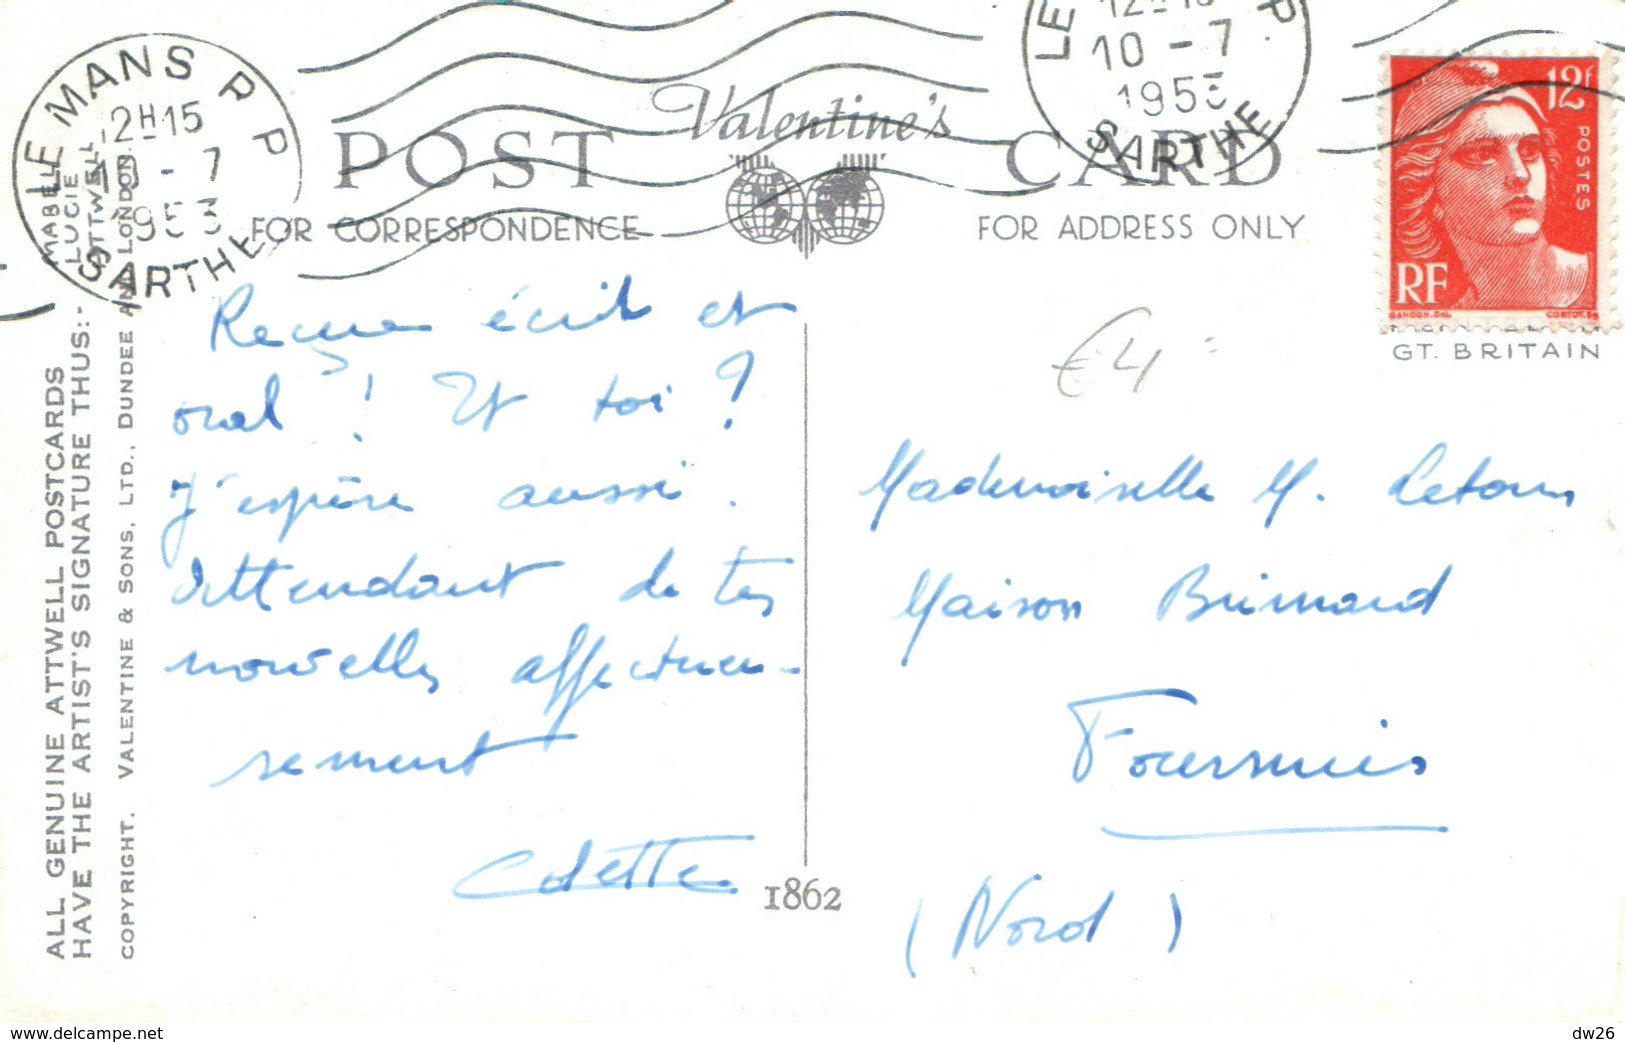 LE MANS R P
12H15
10 - 7
1953
SARTHE
LE P
12H15
10 - 7
1953
SARTHE
Valentine's
POST CARD
FOR CORRESPONDENCE
FOR ADDRESS ONLY
12F
POSTES
RF
GANDON.Del.
CORTOT.Sc
GT. BRITAIN
ALL GENUINE ATTWELL POSTCARDS
HAVE THE ARTIST'S SIGNATURE THUS:-
MABEL
LUCIE
ATTWELL
COPYRIGHT. VALENTINE & SONS, LTD., DUNDEE AND LONDON.
Reçue écrit et
oral ! Et toi ?
J'espère aussi.
Attendant de tes
nouvelles affectueu-
sement
Colette
1862
€4
Mademoiselle M. Letoum
Maison Brimard
Fourmies
(Nord)
www.delcampe.net
dw26